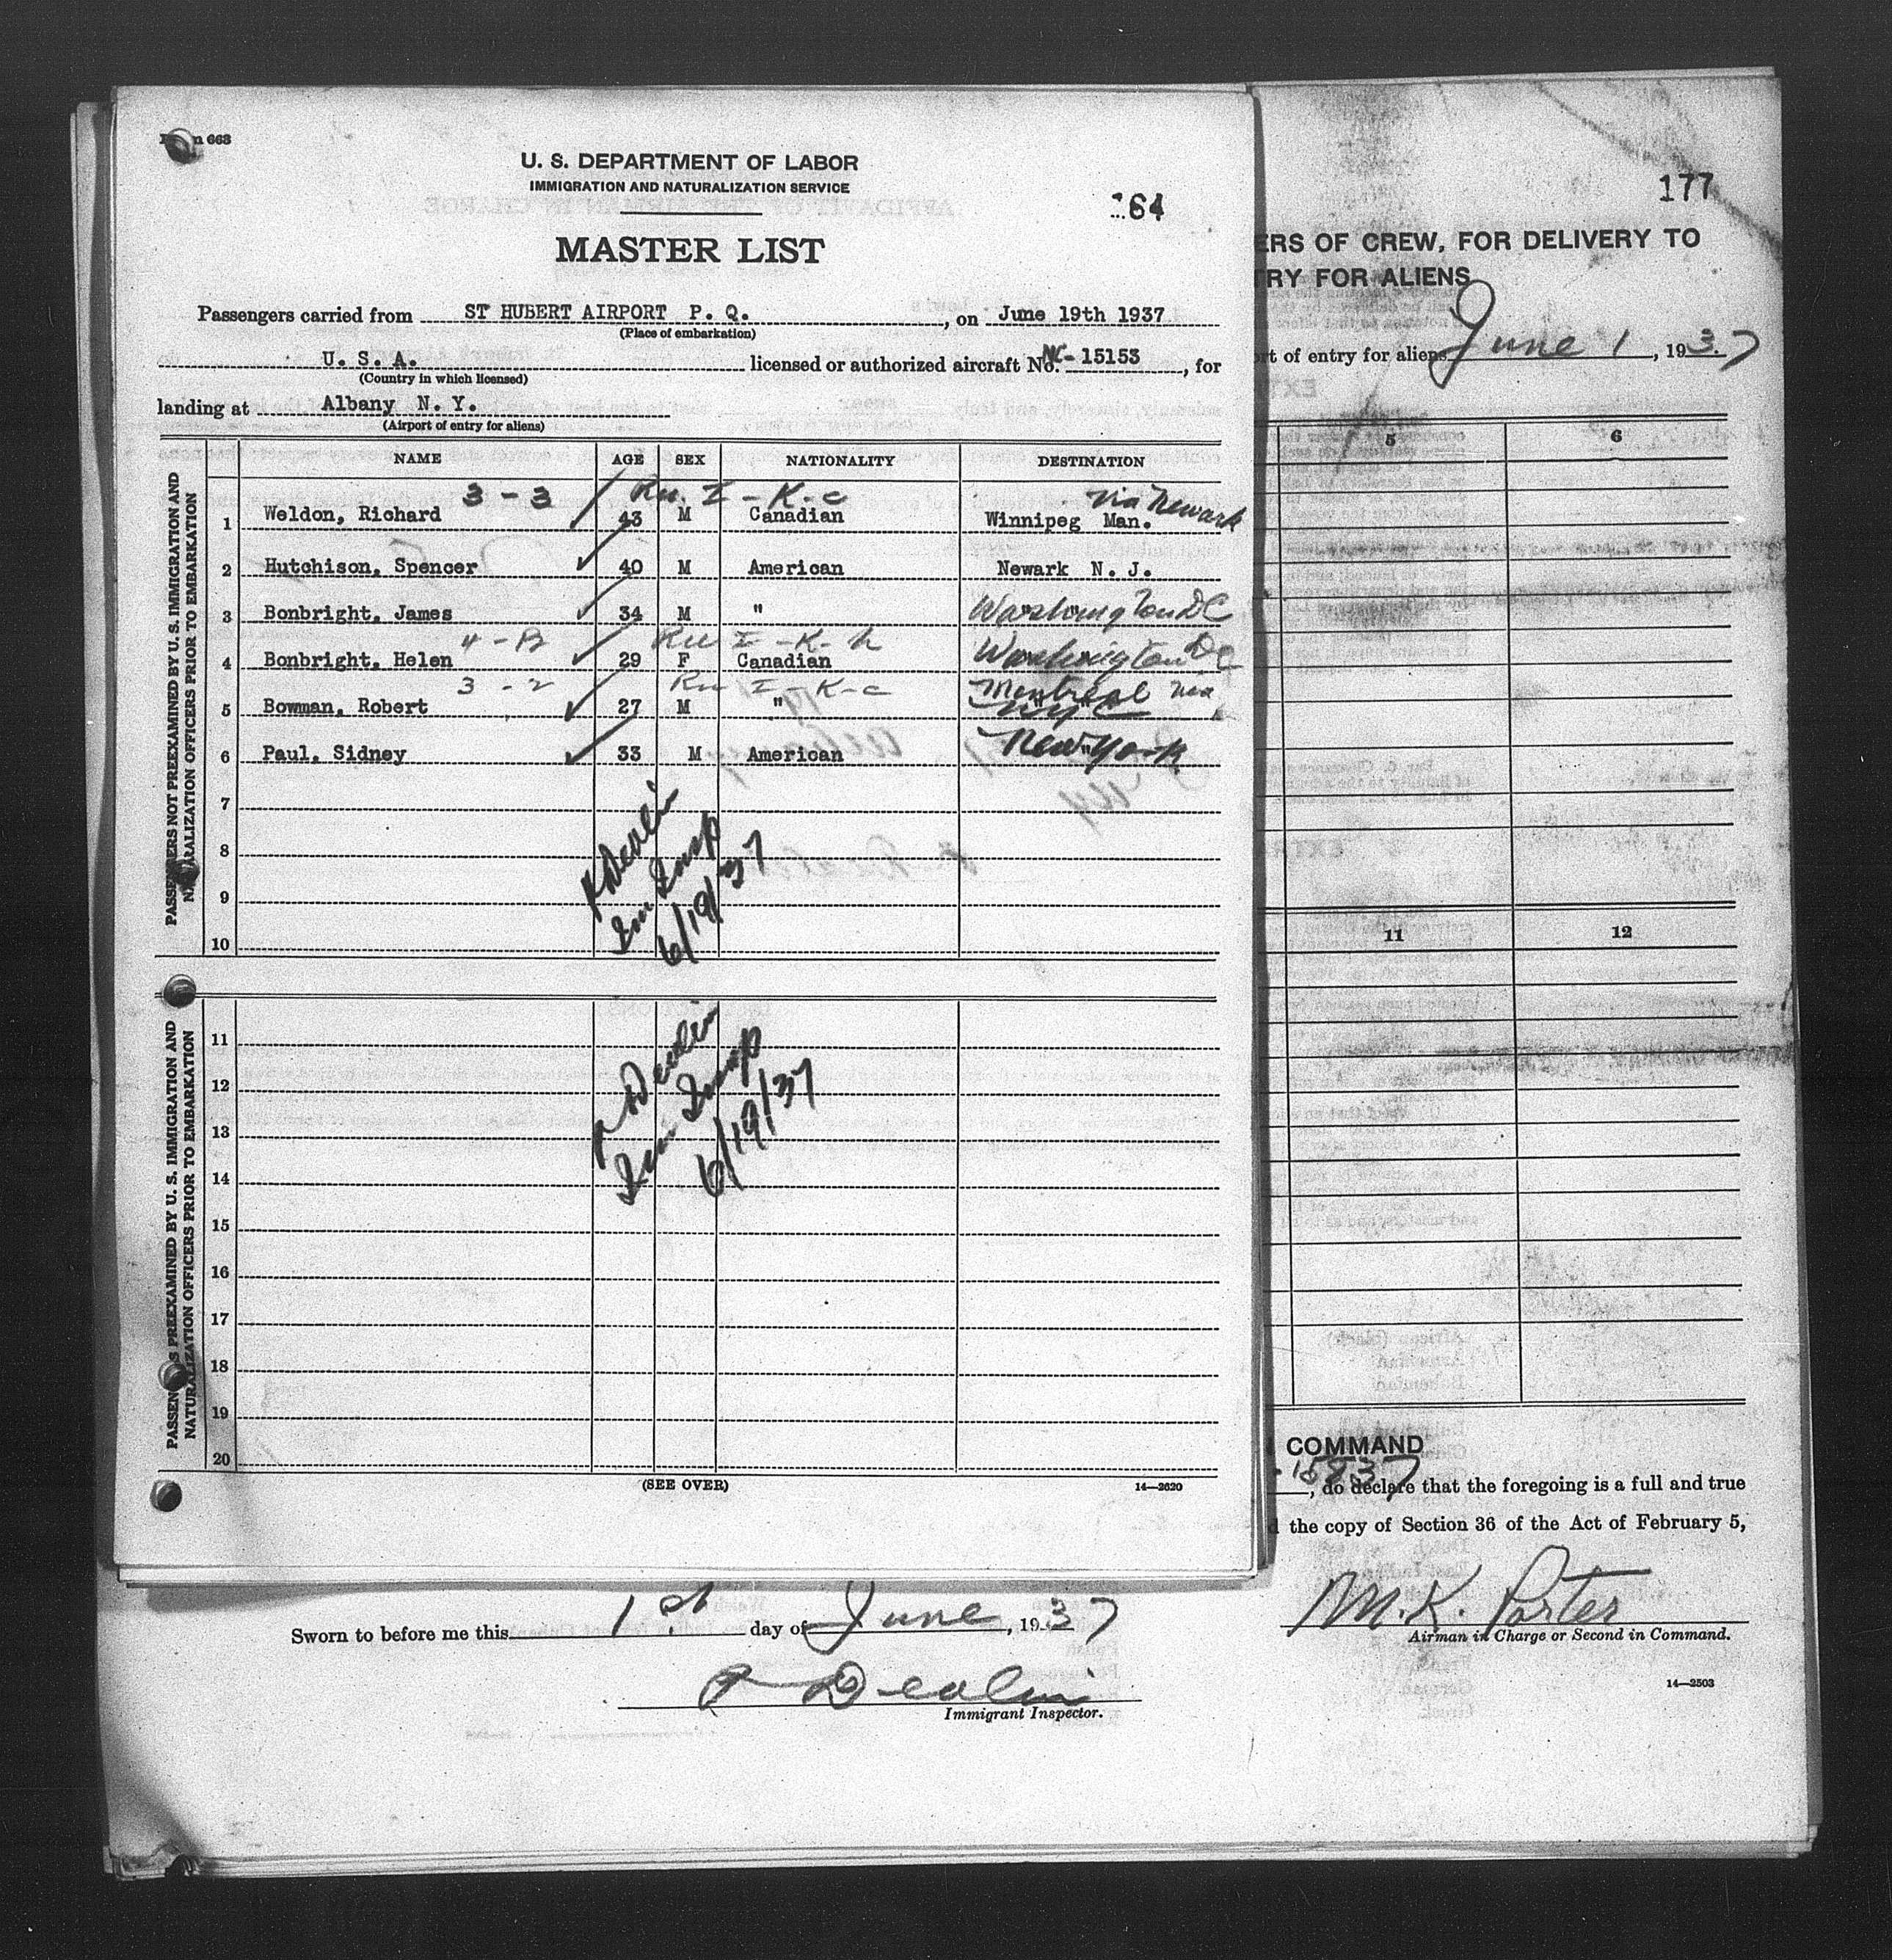 U. S. DEPARTMENT OF LABOR
IMMIGRATION AND NATURALIZATION SERVICE
64
MASTER LIST
Passengers carried from ST HUBERT AIRPORT P. Q., on June 19th 1937
(Place of embarkation)
U. S. A. licensed or authorized aircraft No. NC-15153, for
(Country in which licensed)
landing at Albany N. Y.
(Airport of entry for aliens)
NAME AGE SEX NATIONALITY DESTINATION
PASSENGERS NOT PREEXAMINED BY U. S. IMMIGRATION AND
NATURALIZATION OFFICERS PRIOR TO EMBARKATION
3 - 3 I - K-c via Newark
1 Weldon, Richard 43 M Canadian Winnipeg Man.
2 Hutchison, Spencer 40 M American Newark N. J.
3 Bonbright, James 34 M " Washington DC
4 - B I - K-
4 Bonbright, Helen 29 F Canadian Washington DC
3 - 2 I - K-c Montreal via
5 Bowman, Robert 27 M " NYC
6 Paul, Sidney 33 M American New York
7
8
9
10
Devlin
Im Insp
6/19/37
PASSENGERS PREEXAMINED BY U. S. IMMIGRATION AND
NATURALIZATION OFFICERS PRIOR TO EMBARKATION
11
12
13
14
15
16
17
18
19
20
Devlin
Imm Insp
6/19/37
(SEE OVER) 14—2620
177
ERS OF CREW, FOR DELIVERY TO
TRY FOR ALIENS
rt of entry for aliens June 1, 1937
5 6
11 12
COMMAND
15837
, do declare that the foregoing is a full and true
the copy of Section 36 of the Act of February 5,
M. K. Porter
Airman in Charge or Second in Command.
Sworn to before me this 1st day of June, 1937
Devlin
Immigrant Inspector.
14—2503